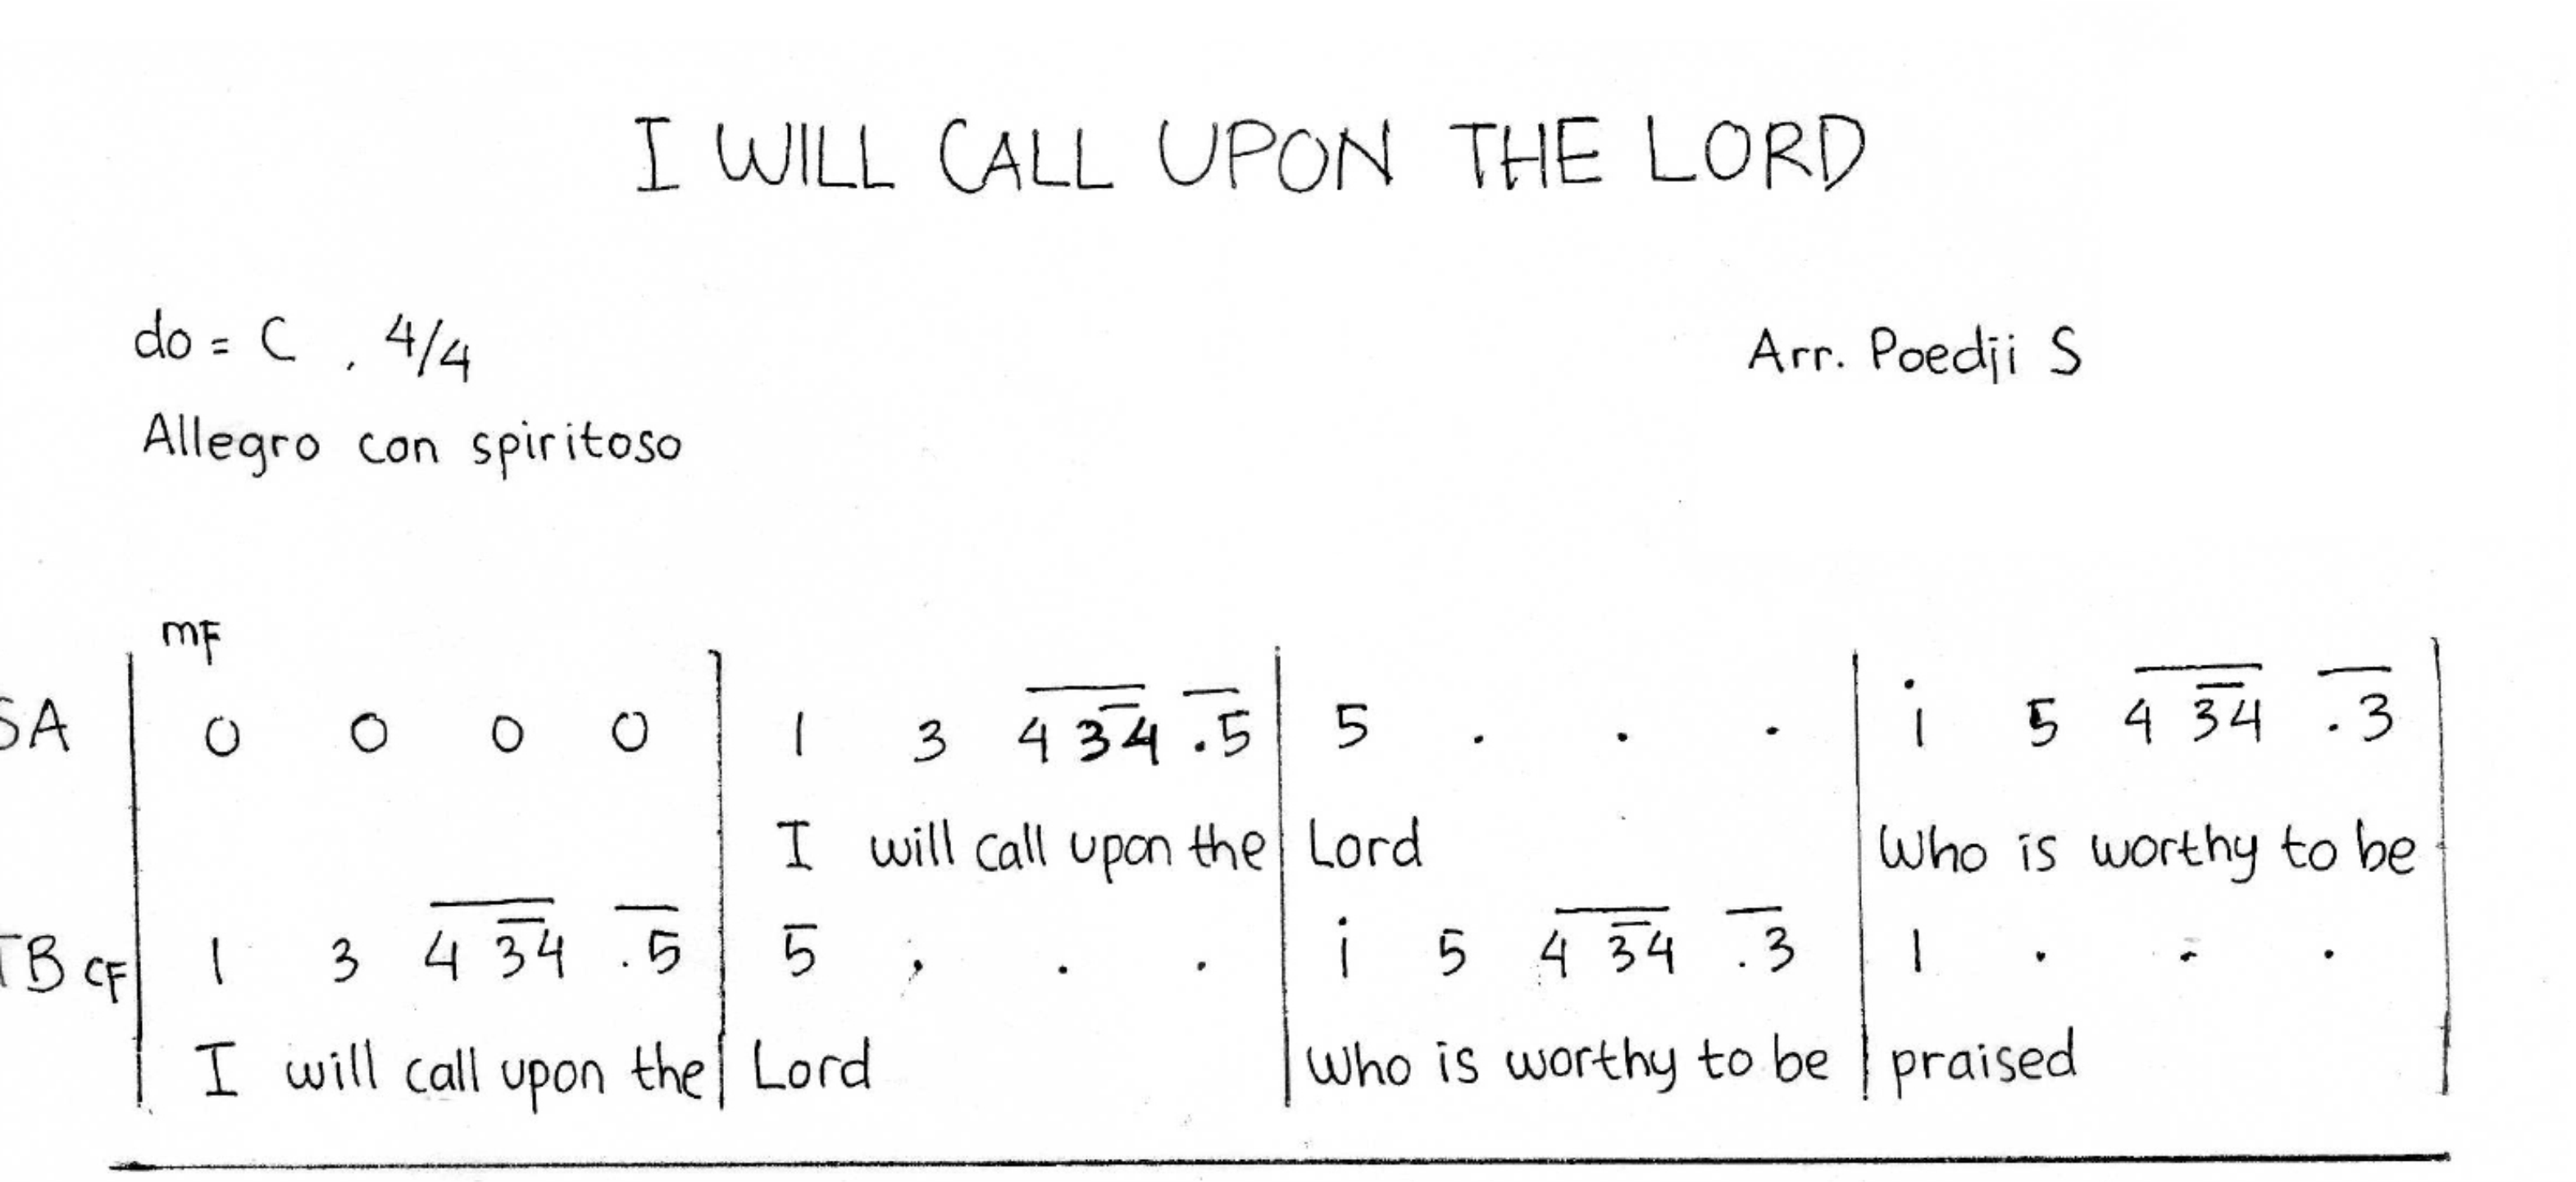 I WILL CALL UPON THE LORD
do = C , 4/4
Arr. Poedji S
Allegro con spiritoso
mF
SA | 0 0 0 0 | 1 3 4 34 .5 | 5 . . . | i 5 4 34 .3 |
I will call upon the | Lord | Who is worthy to be
TB CF | 1 3 4 34 .5 | 5 . . . | i 5 4 34 .3 | 1 . . . |
I will call upon the | Lord | Who is worthy to be | praised